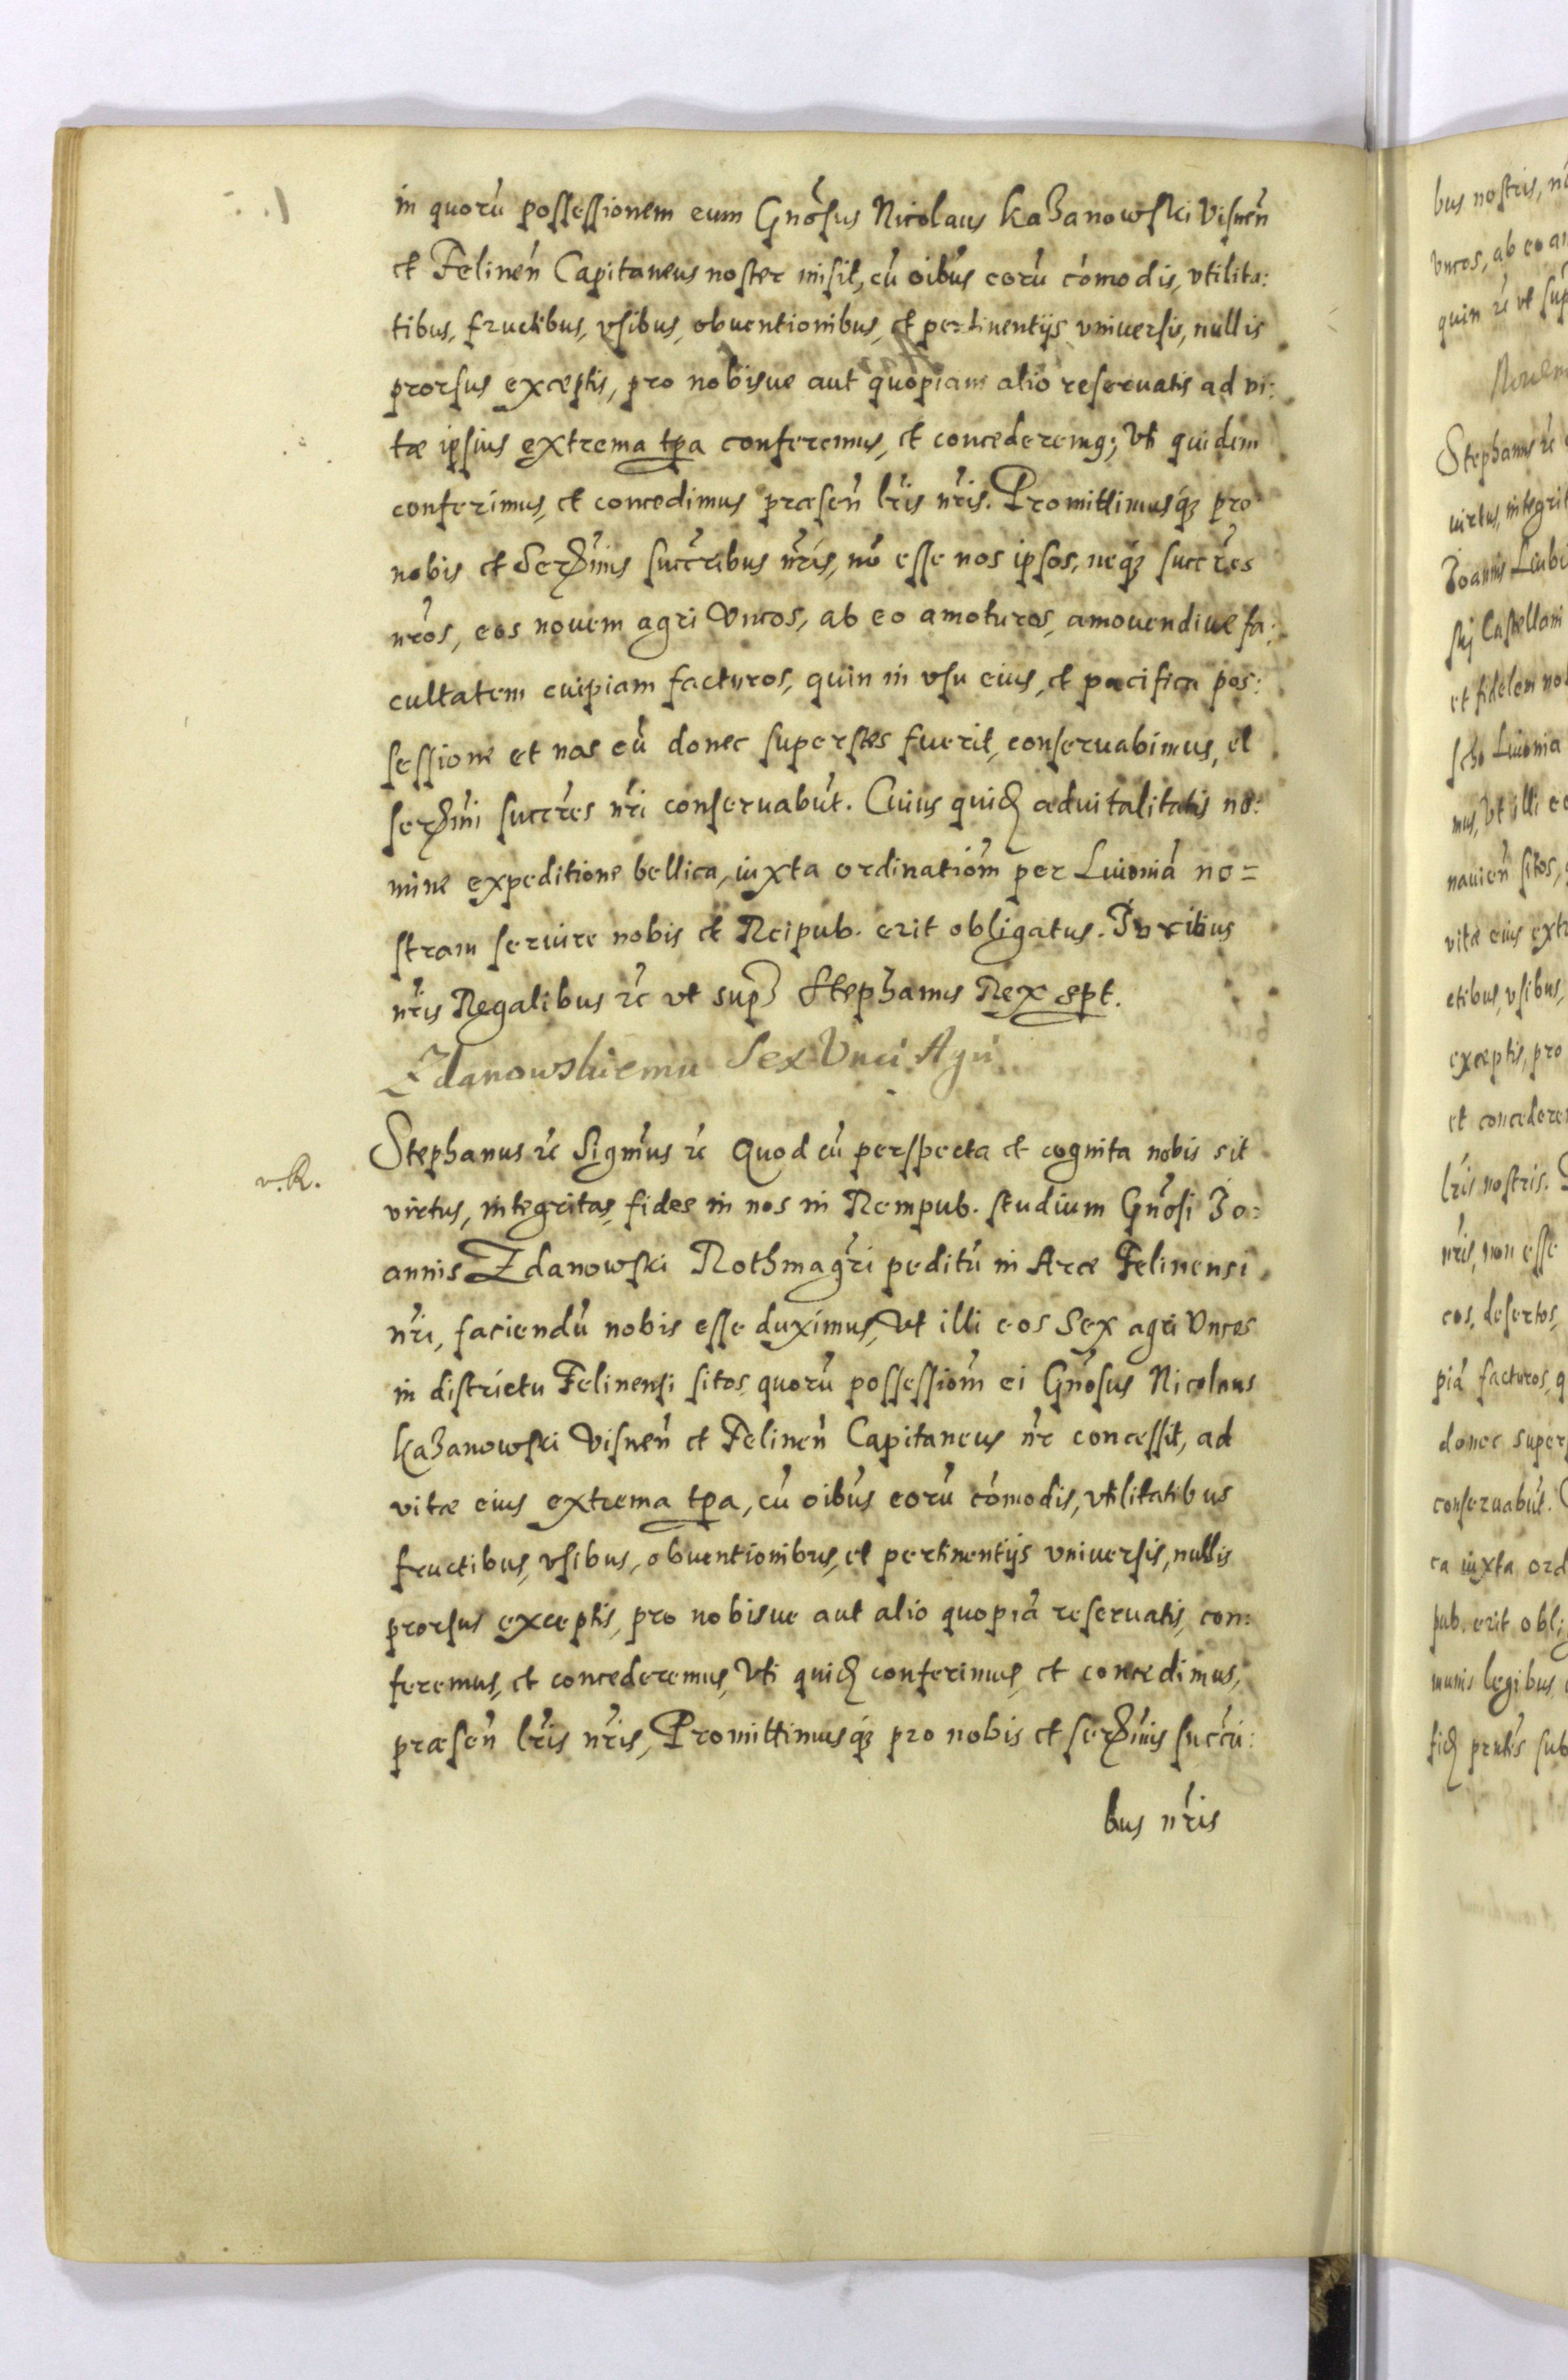 in quorũ possessionem eum Gnõsus Nicolaus Kazanowski Visneñ
et Felineñ Capitaneus noster misit, cũ oibus eorũ cõmodis, vtilita:
tibus, fructibus, vsibus, obuentionibus, et pertinentijs vniuersis, nullis
prorsus exceptis, pro nobisue aut quopiam alio reseruatis ad vi:
tæ ipsius extrema tpa conferemus, et concederemq; Vti quidem
conferimus, et concedimus præseñ lr̃is nr̃is. Promittimusq̃ pro
nobis et Serm̃is succr̃ibus nr̃is, nõ esse nos ipsos, neq̃ succr̃es
nr̃os, eos nouem agri Vncos, ab eo amoturos, amouendiue fa:
cultatem cuipiam facturos, quin in vsu eius, et pacifica pos:
sessione et nos eũ donec superstes fuerit, conseruabimus, et
serm̃i succr̃es nr̃i conseruabũt. Cuius quid aduitalitatis no:
mine expeditione bellica, iuxta ordinatiõm per Liuoniã no=
stram seruire nobis et Reipub. erit obligatus. Iuribus
nr̃is Regalibus rc̃ vt sup Stephanus Rex spt.
Zdanowskiemu Sex Unci Agri
Stephanus rc̃ Signm̃us rc̃ Quod cũ perspecta et cognita nobis sit
v. R.
virtus, integritas, fides in nos in Rempub. studium Gnõsi Jo:
annis Zdanowski Rothmagr̃i peditũ in Arce Felinensi
nr̃i, faciendũ nobis esse duximus, Vt illi eos Sex agri Vncos
in districtu Felinensi sitos, quorũ possessiõm ei Gnõsus Nicolaus
Kazanowski Visneñ et Felineñ Capitaneus nr̃ concessit, ad
vitæ eius extrema tpa, cũ oibus eorũ cõmodis, vtilitatibus
fructibus, vsibus, obuentionibus, et pertinentijs vniuersis, nullis
prorsus exceptis, pro nobisue aut alio quopiã reseruatis, con:
feremus, et concederemus, Vti quid conferimus, et concedimus,
præseñ lr̃is nr̃is, Promittimusq̃ pro nobis et serm̃is succri:
bus nr̃is